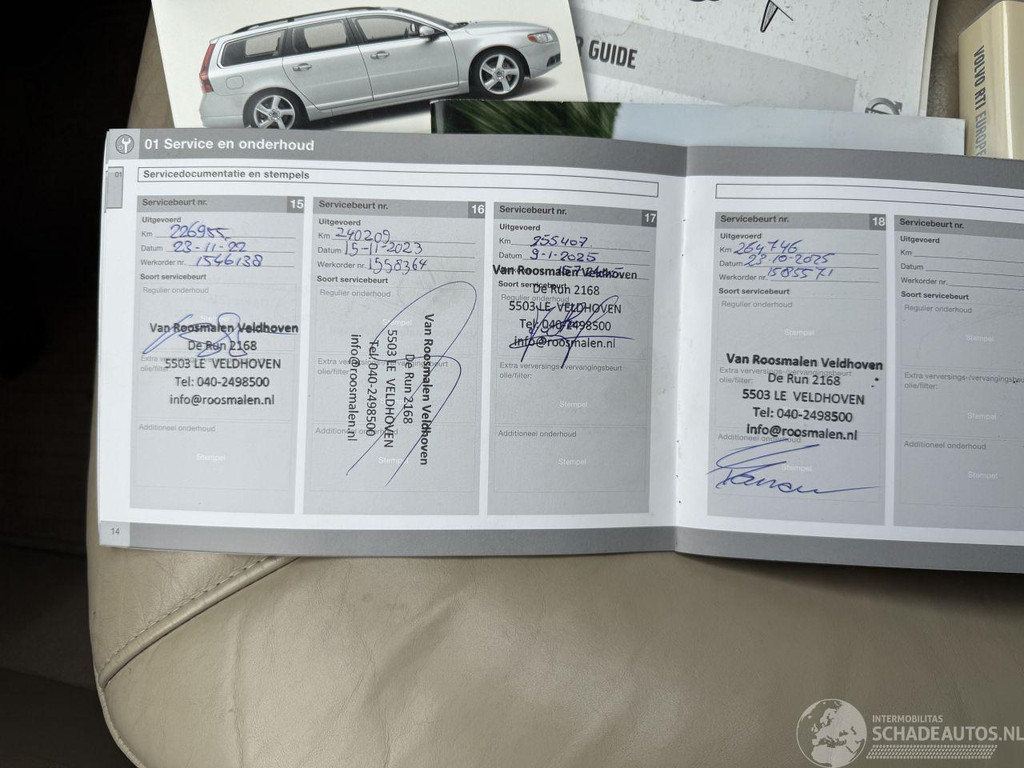 R GUIDE
VOLVO RTI EUROPE
01 Service en onderhoud
01
Servicedocumentatie en stempels
Servicebeurt nr. 15
Uitgevoerd
Km 226955
Datum 23-11-22
Werkorder nr. 1546138
Soort servicebeurt
Regulier onderhoud
Van Roosmalen Veldhoven
De Run 2168
5503 LE VELDHOVEN
Tel: 040-2498500
info@roosmalen.nl
Extra
olie/filter:
Additioneel onderhoud
Stempel
Servicebeurt nr. 16
Uitgevoerd
Km 240209
Datum 15-11-2023
Werkorder nr. 1558364
Soort servicebeurt
Regulier onderhoud
Stempel
Van Roosmalen Veldhoven
De Run 2168
5503 LE VELDHOVEN
Tel: 040-2498500
info@roosmalen.nl
olie/filter:
Additioneel onderhoud
Stempel
Servicebeurt nr. 17
Uitgevoerd
Km 255407
Datum 9-1-2025
Soort
Van Roosmalen Veldhoven
De Run 2168
5503 LE VELDHOVEN
Tel: 040-2498500
info@roosmalen.nl
Extra verversings-/vervangingsbeurt
olie/filter:
Stempel
Additioneel onderhoud
Stempel
14
Servicebeurt nr. 18
Uitgevoerd
Km 264746
Datum 23-10-2025
Werkorder nr. 1585571
Soort servicebeurt
Regulier onderhoud
Stempel
Van Roosmalen Veldhoven
Extra verversings-/vervangingsbeurt
olie/filter:
De Run 2168
5503 LE VELDHOVEN
Tel: 040-2498500
info@roosmalen.nl
Additioneel onderhoud
Stempel
Servicebeurt nr.
Uitgevoerd
Km
Datum
Werkorder nr.
Soort servicebeurt
Regulier onderhoud
Stempel
Extra verversings-/vervangings
olie/filter:
Stempel
Additioneel onderhoud
Stempel
INTERMOBILITAS
SCHADEAUTOS.NL